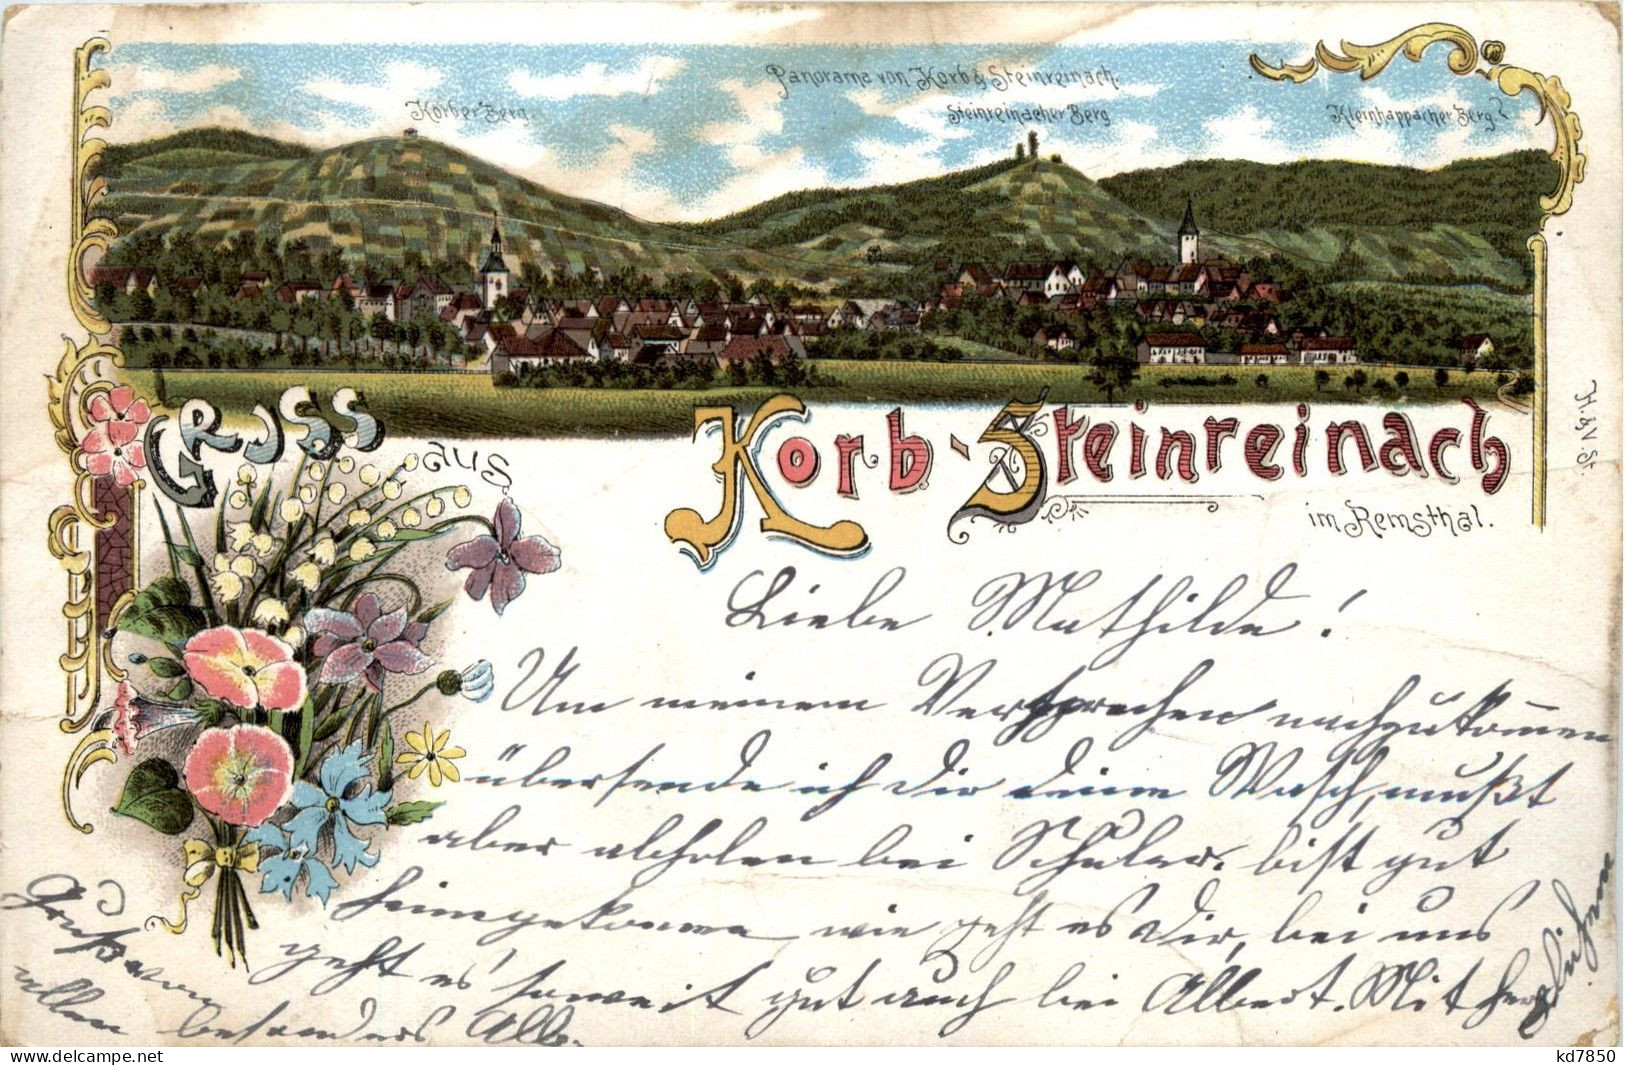 Panorama von Korb & Steinreinach.
Korber Berg.
Steinreinacher Berg
Kleinhappacher Berg.
Gruss
aus
Korb-Steinreinach
im Remsthal.
H. & V. St.
Liebe Mathilde!
Um meinem Versprechen nachzukommen
übersende ich Dir deine Wasch, mußt
aber abholen bei Schuler. bist gut
heimgekomme, wie geht es Dir, bei uns
geht es soweit gut auch bei Albert. Mit herzlichem
Gruß von
allen besonders Alb.
www.delcampe.net
kd7850